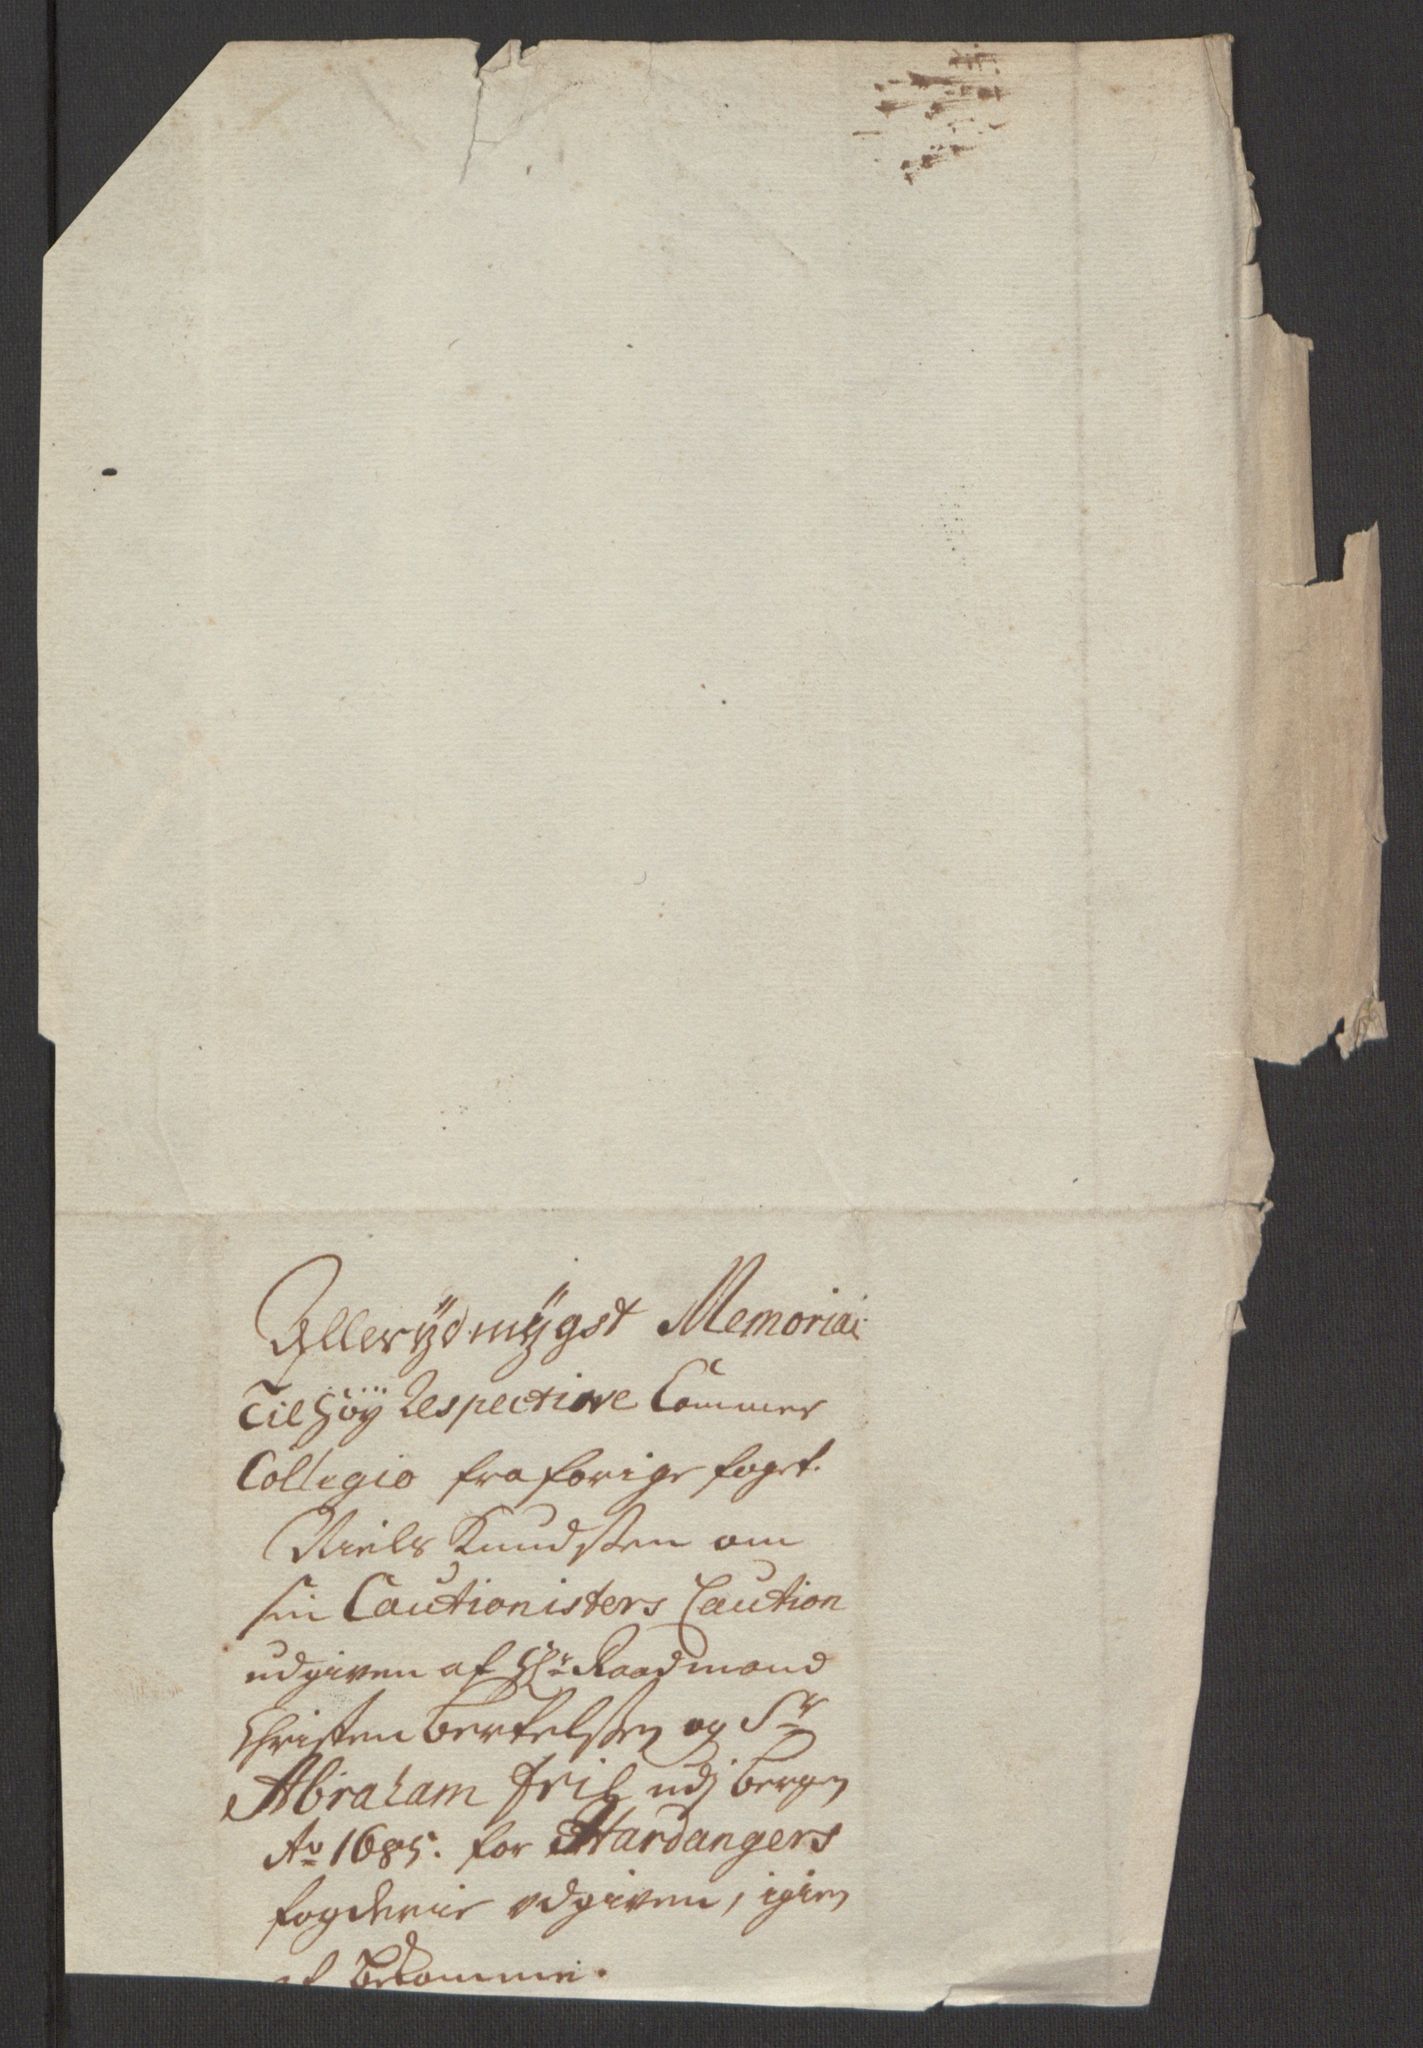 Allerÿdmÿgst Memorial
Til Höy Respective Cammer
Collegio fra forige foget
Niels Knudssen om
sin Cautionisters Caution
udgiven af Hr. Raadmand
Christen Bertelssen og Sr
Abraham udj Bergen
Ao 1685. for Hardangers
fogderie udgiven, igien
at bekomme.